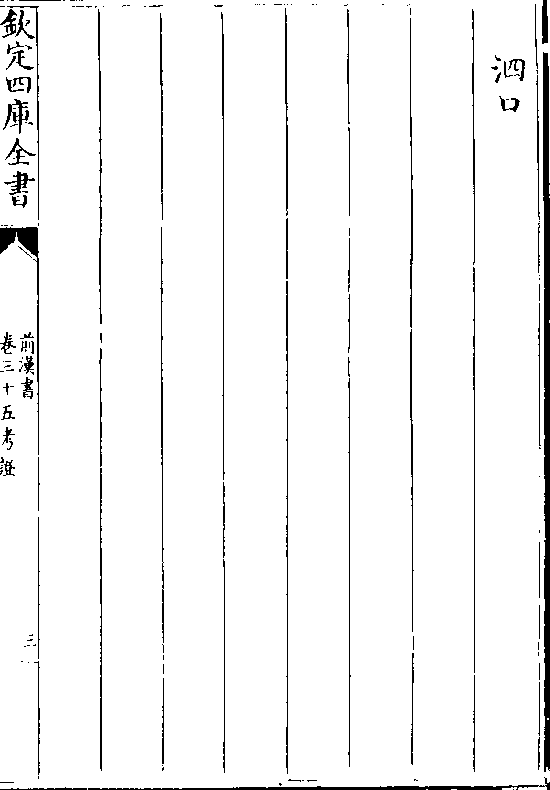 泗口
欽定四庫全書
前漢書
卷三十五考證
三